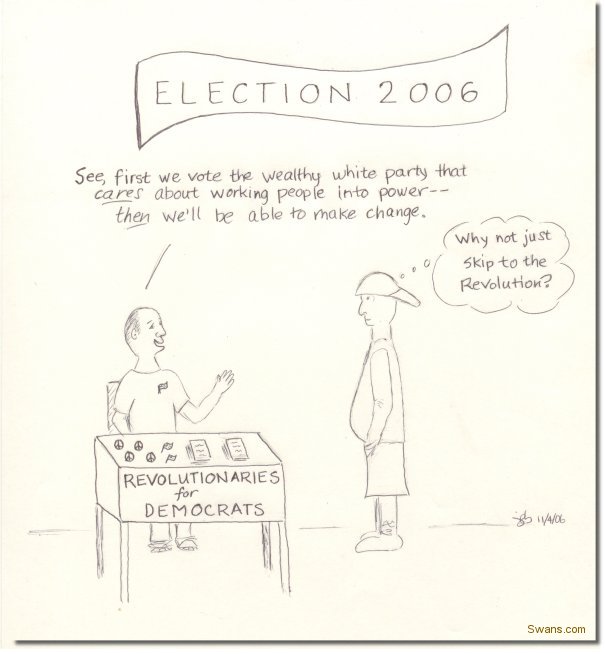 ELECTION 2006
See, first we vote the wealthy white party that
cares about working people into power--
then we'll be able to make change.
Why not just
skip to the
Revolution?
REVOLUTIONARIES
for
DEMOCRATS
11/4/06
Swans.com